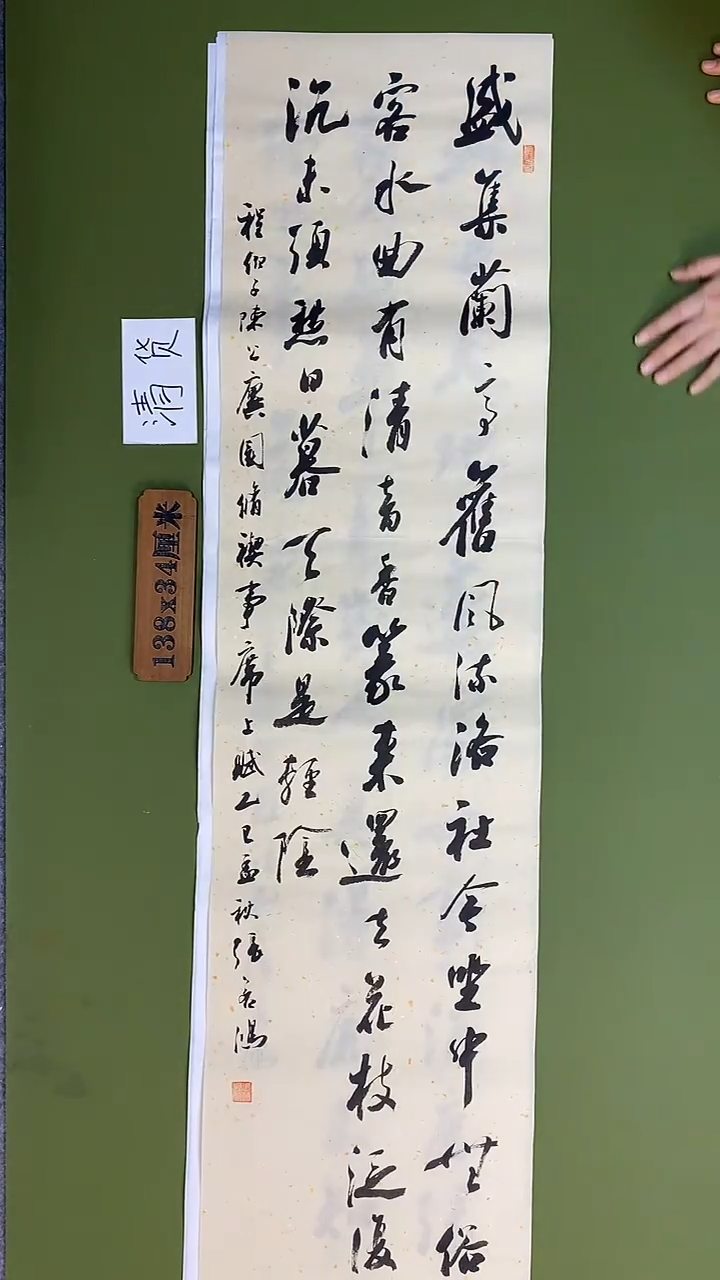 盛集蘭亭舊風流洛社今坐中無俗
客水曲有清音香篆來還去花枝泛復
沉未須愁日暮天際是輕陰
程伯子陳公廙園脩禊事席上賦乙巳孟秋張名鴻
清货
138x34厘米